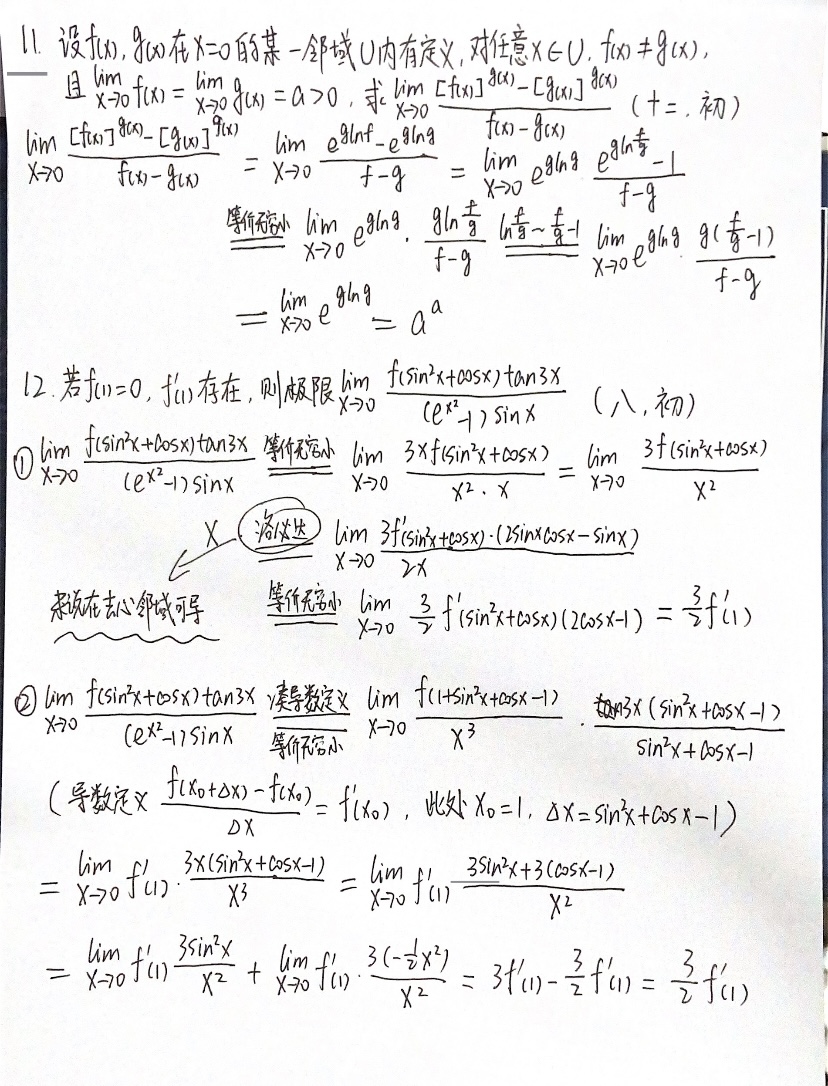 11. 设f(x), g(x)在x=0的某一邻域U内有定义, 对任意x∈U, f(x)≠g(x),
且 lim_{x→0} f(x) = lim_{x→0} g(x) = a>0, 求 lim_{x→0} ([f(x)]^{g(x)} - [g(x)]^{g(x)})/(f(x)-g(x)) (十二, 初)
lim_{x→0} ([f(x)]^{g(x)} - [g(x)]^{g(x)})/(f(x)-g(x)) = lim_{x→0} (e^{glnf} - e^{glng})/(f-g) = lim_{x→0} e^{glng} (e^{gln f/g} - 1)/(f-g)
等价无穷小 lim_{x→0} e^{glng} · (gln f/g)/(f-g) ln f/g ~ f/g -1 lim_{x→0} e^{glng} g(f/g -1)/(f-g)
= lim_{x→0} e^{glng} = a^a
12. 若f(1)=0, f'(1)存在, 则极限 lim_{x→0} f(sin²x+cosx)tan3x/((e^{x²}-1)sinx) (八, 初)
① lim_{x→0} f(sin²x+cosx)tan3x/((e^{x²}-1)sinx) 等价无穷小 lim_{x→0} 3xf(sin²x+cosx)/(x²·x) = lim_{x→0} 3f(sin²x+cosx)/x²
X 洛必达 lim_{x→0} 3f'(sin²x+cosx)·(2sinxcosx-sinx)/2x
未说在去心邻域可导 等价无穷小 lim_{x→0} 3/2 f'(sin²x+cosx)(2cosx-1) = 3/2 f'(1)
② lim_{x→0} f(sin²x+cosx)tan3x/((e^{x²}-1)sinx) 凑导数定义 等价无穷小 lim_{x→0} f(1+sin²x+cosx-1)/x³ · tan3x(sin²x+cosx-1)/(sin²x+cosx-1)
(导数定义 (f(x₀+Δx)-f(x₀))/Δx = f'(x₀), 此处 x₀=1, Δx=sin²x+cosx-1)
= lim_{x→0} f'(1)·3x(sin²x+cosx-1)/x³ = lim_{x→0} f'(1) (3sin²x+3(cosx-1))/x²
= lim_{x→0} f'(1) 3sin²x/x² + lim_{x→0} f'(1)·3(-1/2x²)/x² = 3f'(1) - 3/2 f'(1) = 3/2 f'(1)